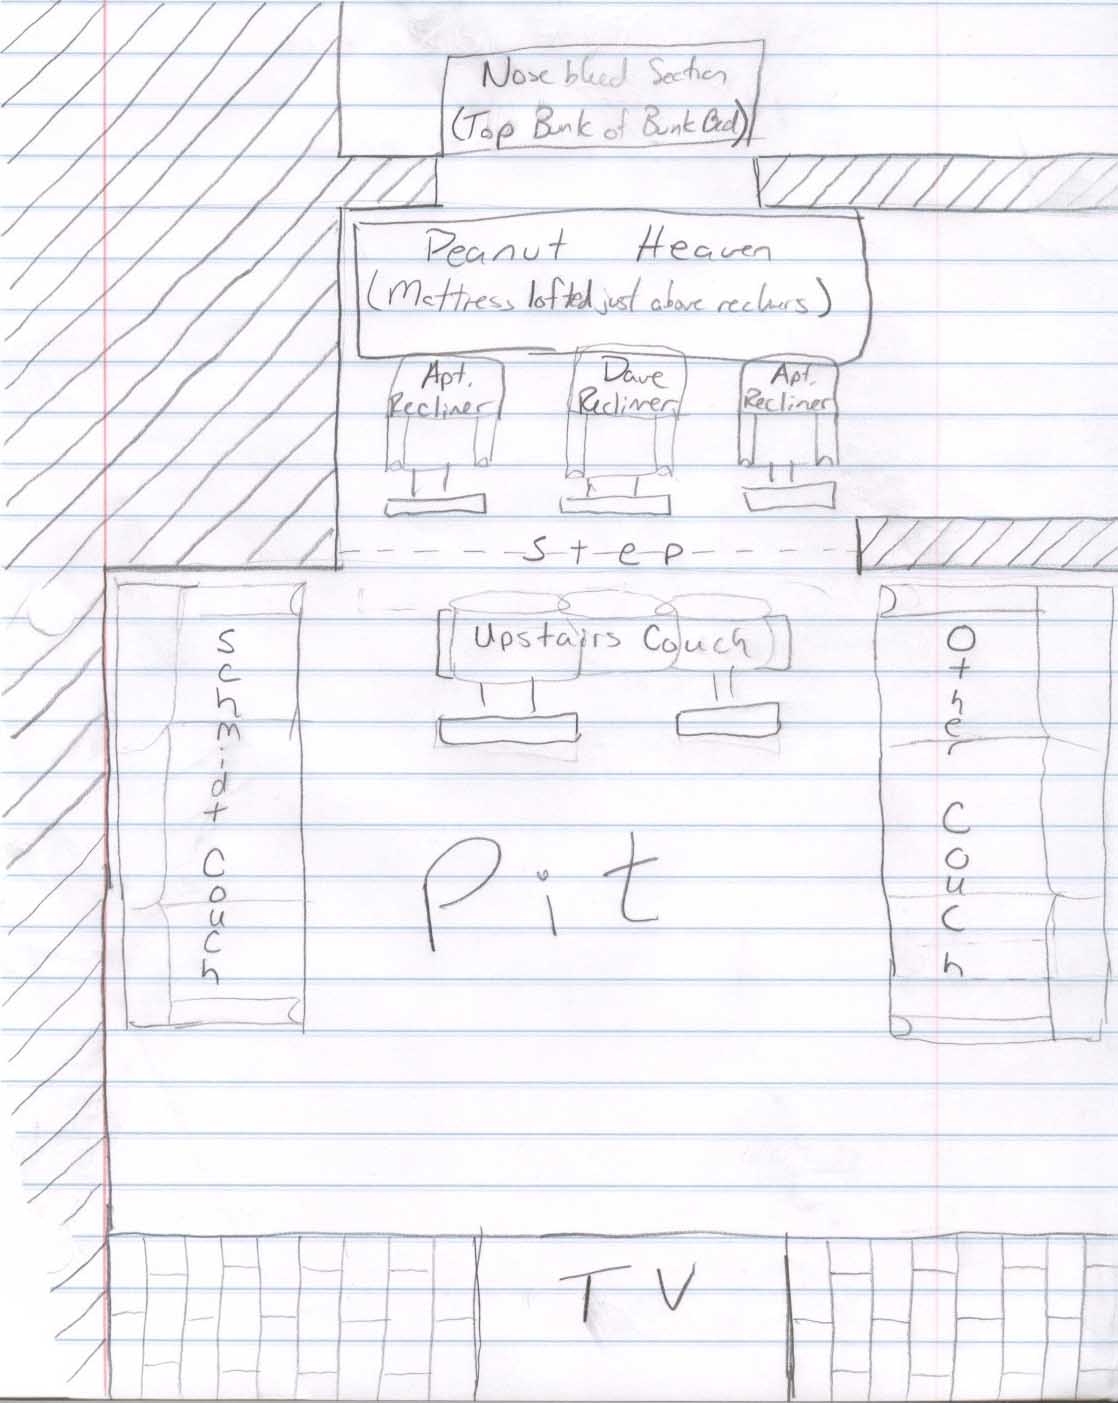 Nosebleed Section
(Top Bunk of Bunk Bed)
Peanut Heaven
(Mattress lofted just above recliners)
Apt.
Recliner
Dave
Recliner
Apt.
Recliner
Step
Upstairs Couch
Schmidt Couch
Other Couch
Pit
TV